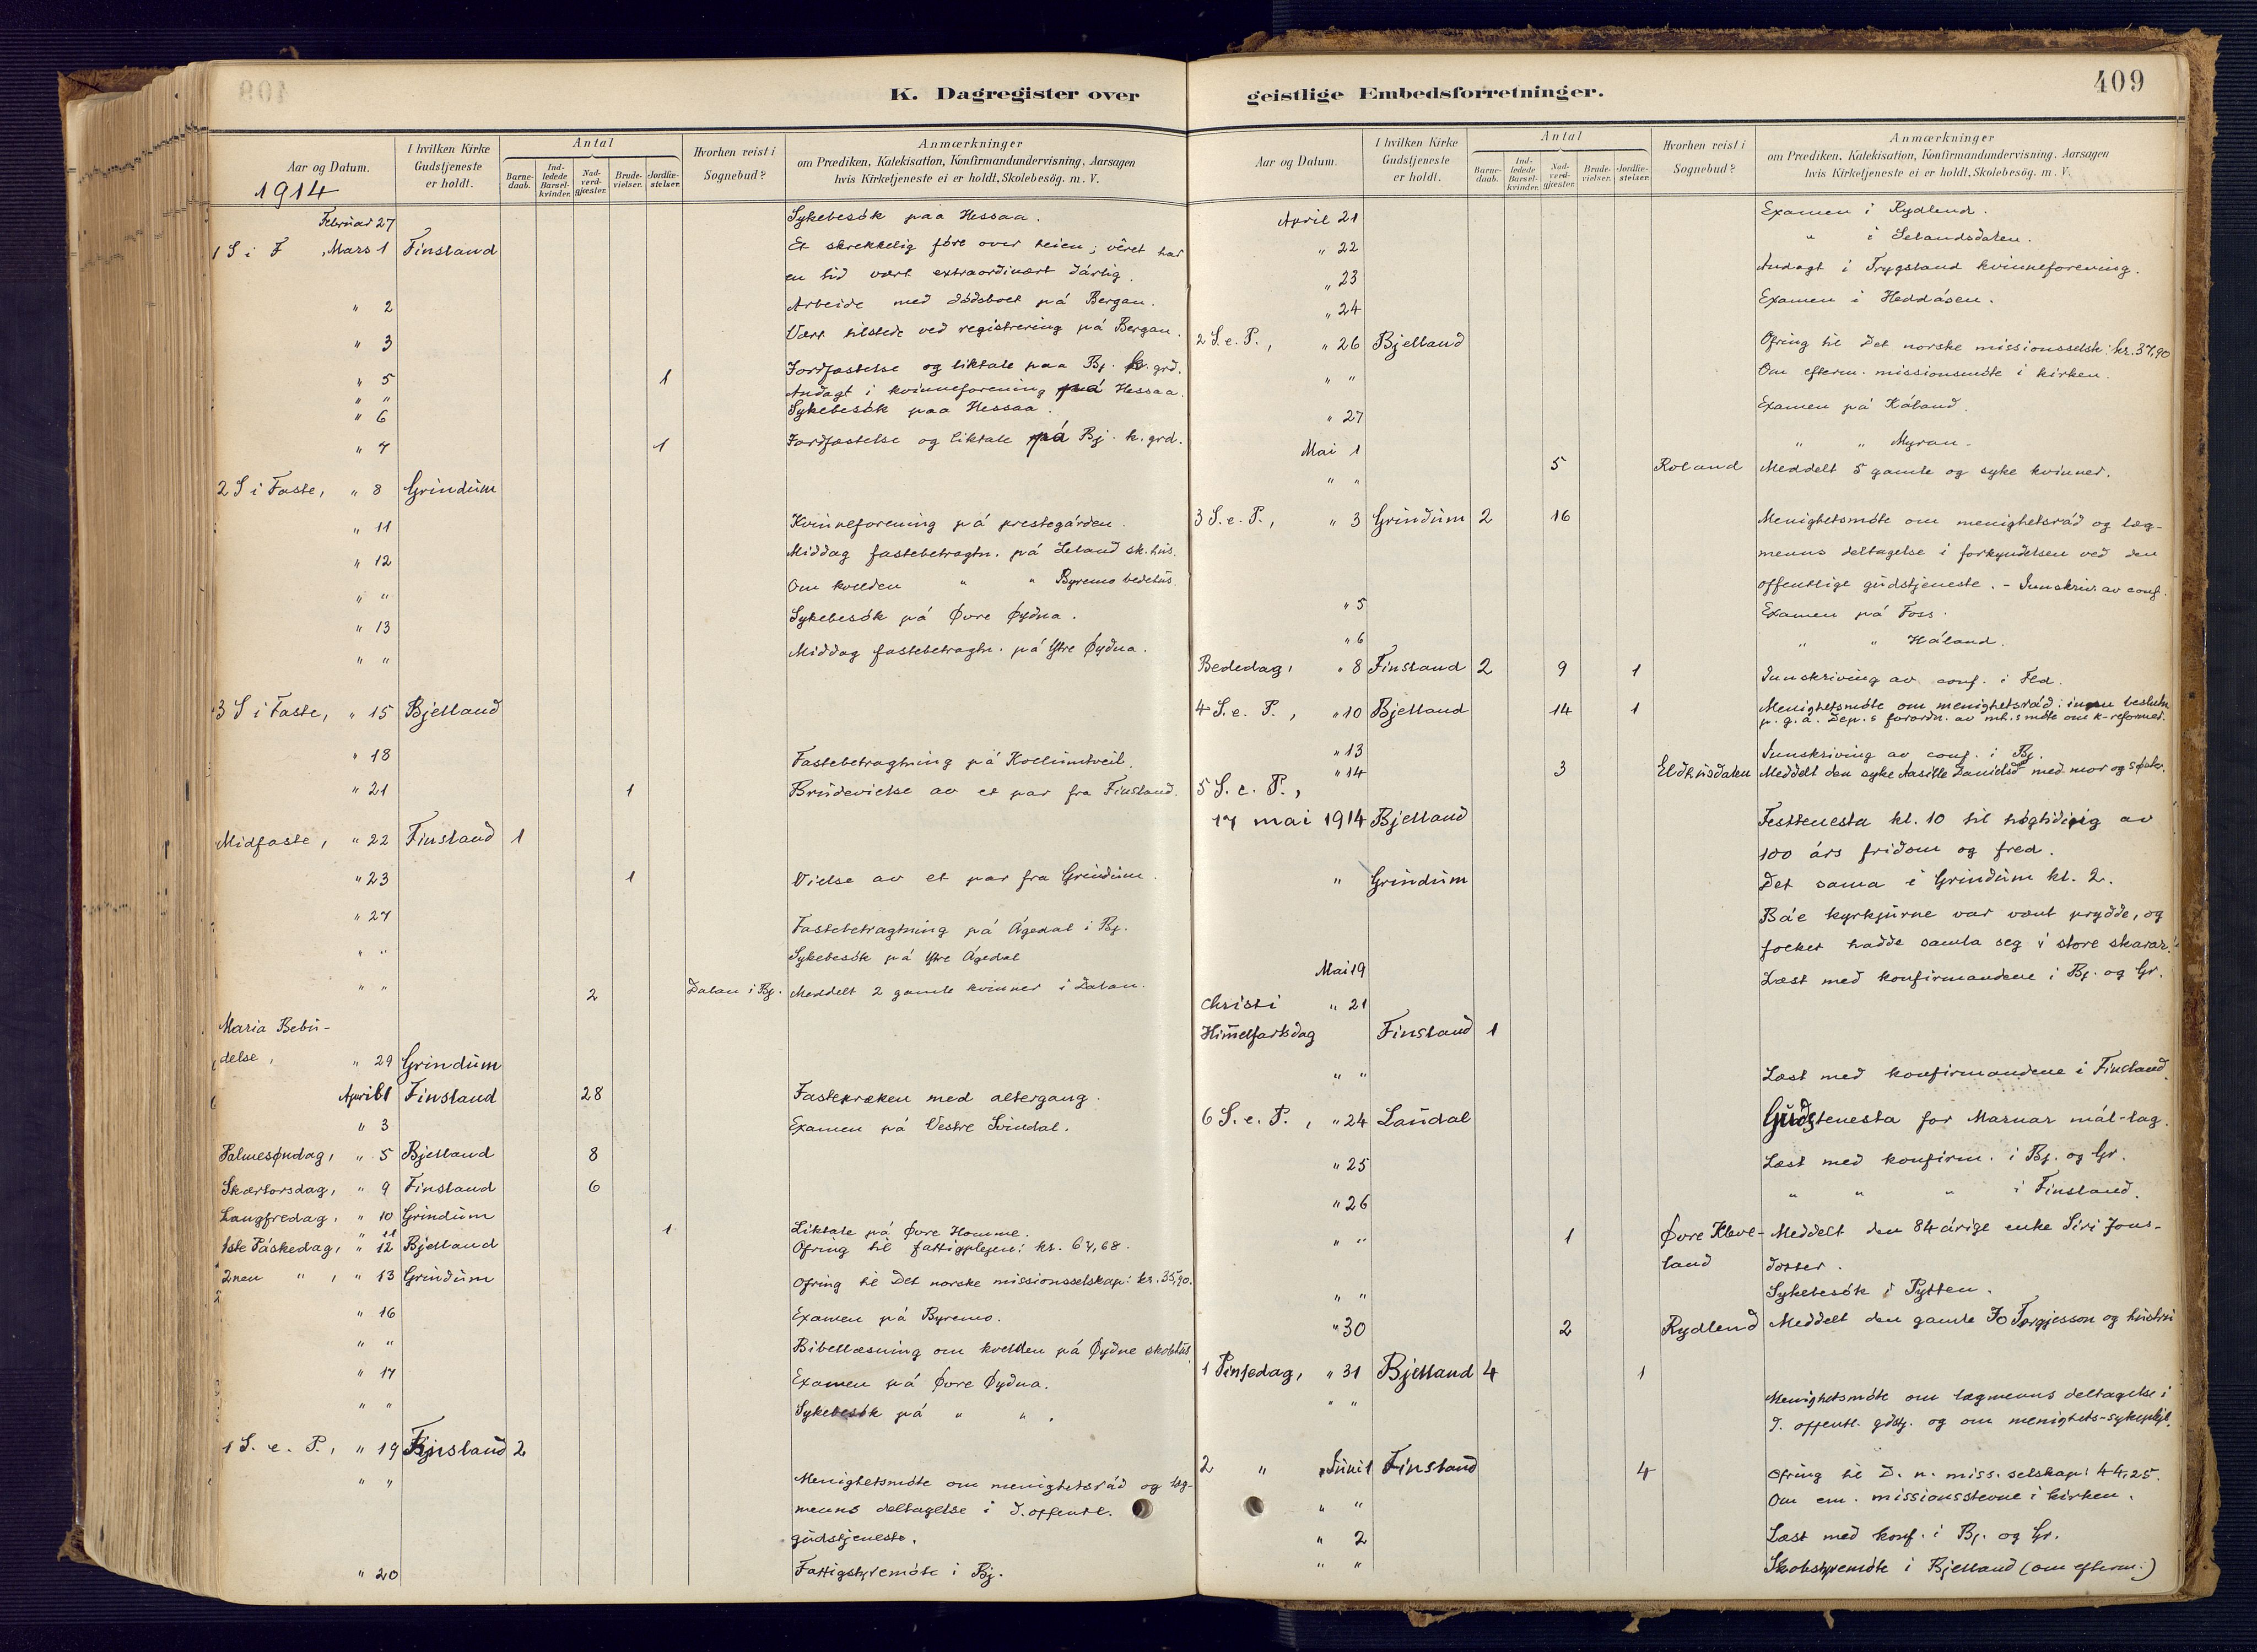 K. Dagregister over
Aar og Datum.
I hvilken Kirke Gudstjeneste er holdt.
Antal
Barnedaab.
Indledede Barselkvinder.
Nadverdgjæster.
Brudevielser.
Jordfæstelser.
Hvorhen reist i Sognebud?
Anmærkninger
om Prædiken, Katekisation, Konfirmandundervisning, Aarsagen
hvis Kirketjeneste ei er holdt, Skolebesøg. m. V.
1914
Februar 27 Sykebesök paa Hessaa.
1 S i F , Mars 1 Finsland Et skrekkelig före over heien; vêret har
en tid vært extraordinært dårlig.
" 2 Arbeide med dödsboet på Bergan.
" 3 Vært tilstede ved registrering på Bergan.
" 5 1 Jordfæstelse og liktale paa Bj. k. grd.
" " Andagt i kvinneforening på Hessaa.
" 6 Sykebesök paa Hessaa.
" 7 1 Jordfæstelse og liktale på Bj. k. grd.
2 S i Faste, " 8 Grindum
" 11 Kvinneforening på prestegården.
" 12 Middag fastebetragtn. på Leland sk. hus.
" " Om kvelden " " Byremo bedehus.
" 13 Sykebesök på Øvre Øydna.
" " Middag fastebetragtn. på Ytre Øydna.
3 S i Faste, " 15 Bjelland
" 18 Fastebetragtning på Kollumtveit.
" 21 1 Brudevielse av et par fra Finsland.
Midfaste, " 22 Finsland 1
" 23 1 Vielse av et par fra Grindum.
" 27 Fastebetragtning på Ågedal i Bj.
" " Sykebesök på Ytre Ågedal
" " 2 Dalan i Bj. Meddelt 2 gamle kvinner i Dalan.
Maria Bebu-
delse, " 29 Grindum
April 1 Finsland 28 Fastepræken med altergang.
" 3 Examen på Vestre Svindal.
Palmesøndag, " 5 Bjelland 8
Skærtorsdag, " 9 Finsland 6
Langfredag, " 10 Grindum
" 11 1 Liktale på Øvre Homme.
1ste Påskedag, " 12 Bjelland Ofring til fattigplejen: kr. 67,68.
2nen " , " 13 Grindum Ofring til Det norske missionsselskap: kr. 35,90.
" 16 Examen på Byremo.
" " Bibellæsning om kvelden på Øydne skolehus.
" 17 Examen på Øvre Øydna.
" " Sykebesök på " " .
1 S. e. P., " 19 Finsland 2
" " Menighetsmöte om menighetsråd og læg-
menns deltagelse i d. offentl.
gudstjeneste.
" 20 Fattigstyremöte i Bj.
geistlige Embedsforretninger.
409
Aar og Datum.
I hvilken Kirke Gudstjeneste er holdt.
Antal
Barnedaab.
Indledede Barselkvinder.
Nadverdgjæster.
Brudevielser.
Jordfæstelser.
Hvorhen reist i Sognebud?
Anmærkninger
om Prædiken, Katekisation, Konfirmandundervisning, Aarsagen
hvis Kirketjeneste ei er holdt, Skolebesög. m. V.
April 21 Examen i Rydlend.
" 22 " i Selandsdalen.
" 23 Andagt i Trygsland kvinneforening.
" 24 Examen i Heddåsen.
2 S. e. P., " 26 Bjelland Ofring til Det norske missionsselsk: kr. 37,90
" " Om efterm. missionsmöte i kirken.
" 27 Examen på Kåland.
Mai 1 " " Myran.
" " 5 Roland Meddelt 5 gamle og syke kvinner.
3 S. e. P., " 3 Grindum 2 16 Menighetsmöte om menighetsråd og læg-
menns deltagelse i forkyndelsen ved den
offentlige gudstjeneste. - Innskriv. av conf.
" 5 Examen på Foss.
" 6 " " Håland.
Bededag, " 8 Finsland 2 9 1 Innskriving av conf. i Fld.
4 S. e. P., " 10 Bjelland 14 1 Menighetsmöte om menighetsråd: ingen beslutn
p. g. a. Dep.s forordn. av mh.smöte om k-reformer.
" 13 Innskriving av conf. i Bj.
" 14 3 Eldhusdalen Meddelt den syke Aasille Danielsd. med mor og søster.
5 S. e. P.,
17 mai 1914 Bjelland Festtenesta kl. 10 til høgtiding av
100 års fridom og fred.
" Grindum Det sama i Grindum kl. 2.
Båe kyrkjurne var vænt prydde, og
folket hadde samla seg i store skarar.
Mai 19 Læst med konfirmandene i Bj. og Gr.
Christi " 21
Himelfartsdag Finsland 1
" " Læst med konfirmandene i Finsland.
6 S. e. P., " 24 Laudal Gudstenesta for Marnar mál-lag.
" 25 Læst med konfirm. i Bj. og Gr.
" 26 " " " i Finsland.
" " 1 Øvre Kleve- Meddelt den 84 årige enke Siri Jons-
land dotter.
" " Sykebesök i Pytten.
" 30 2 Rydlend Meddelt den gamle Jo Torgjesson og hustru
1 Pinsedag, " 31 Bjelland 4 1
" " Menighetsmöte om lægmenns deltagelse i
d. offentl. gdstj. og om menighets-sykepleje.
2 " Juni 1 Finsland 4 Ofring til D. n. miss. selskap: 44,25.
" " Om em. missionsstevne i kirken.
" 2 Læst med konf. i Bj. og Gr.
" " Skolestyremöte i Bjelland (om efterm.)